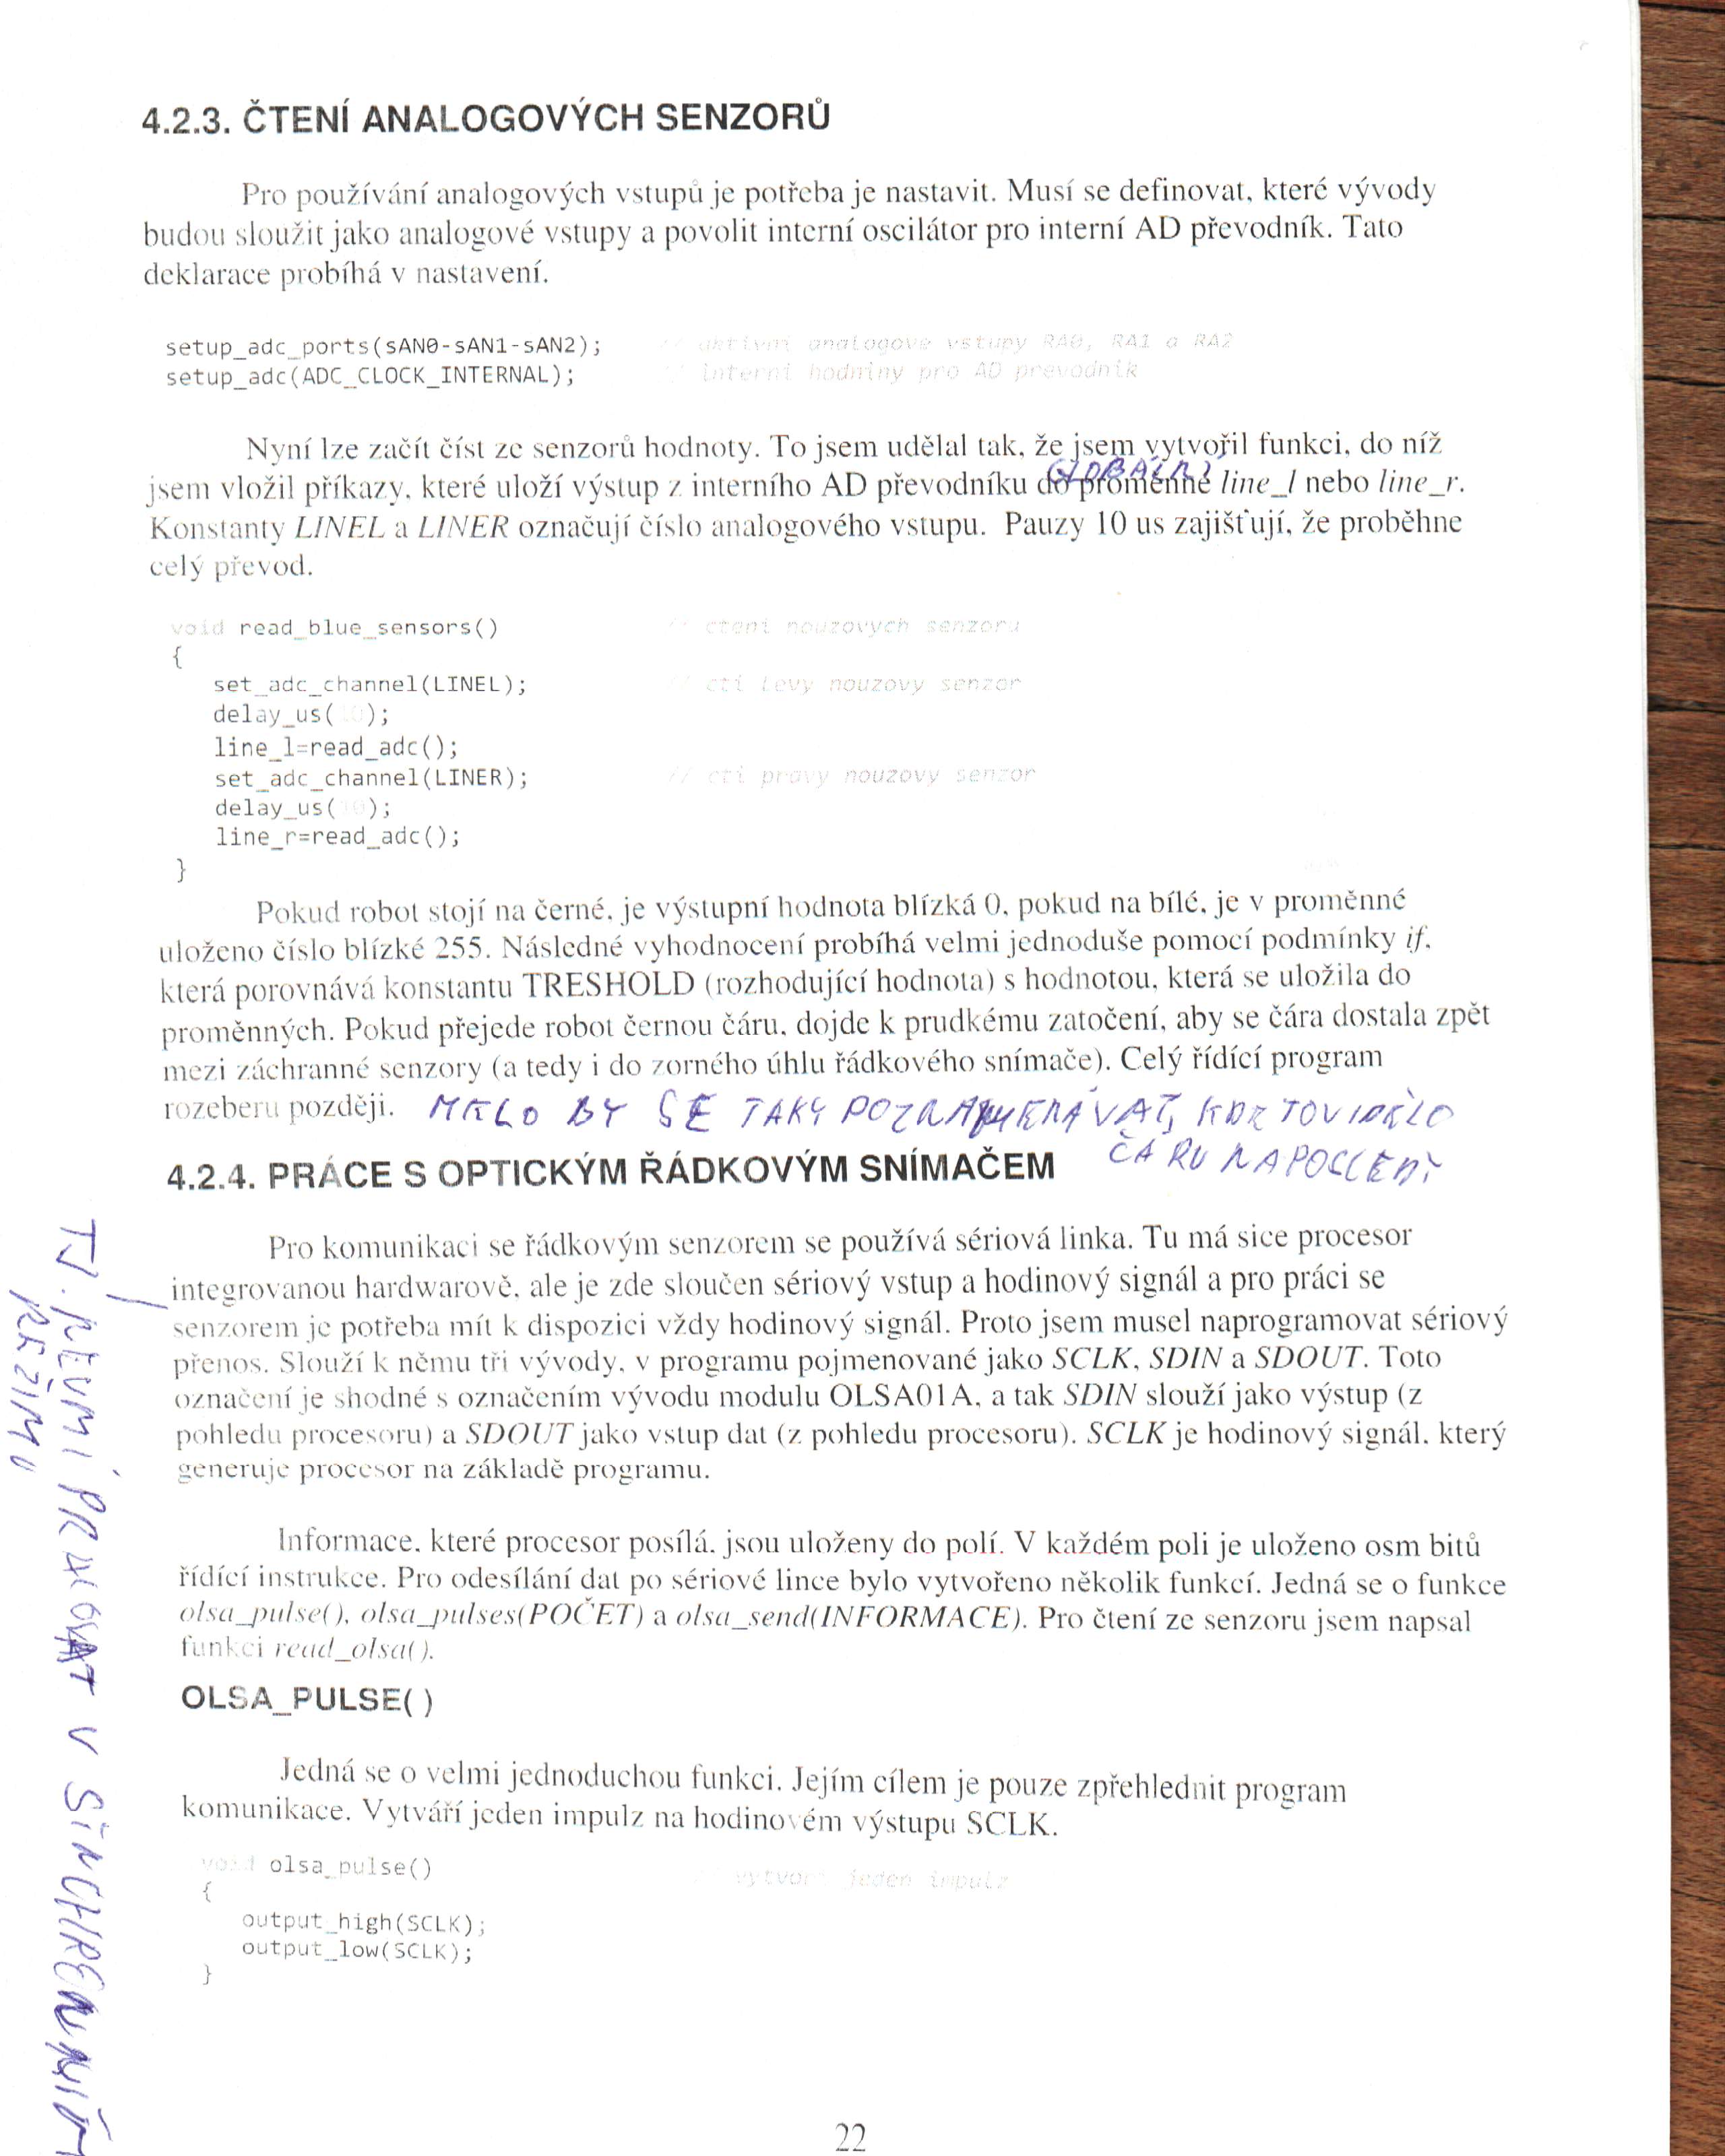 4.2.3. ČTENÍ ANALOGOVÝCH SENZORŮ
Pro používání analogových vstupů je potřeba je nastavit. Musí se definovat, které vývody
budou sloužit jako analogové vstupy a povolit interní oscilátor pro interní AD převodník. Tato
deklarace probíhá v nastavení.
setup_adc_ports(sAN0-sAN1-sAN2); // aktivni analogove vstupy RA0, RA1 a RA2
setup_adc(ADC_CLOCK_INTERNAL); // interni hodniny pro AD prevodnik
Nyní lze začít číst ze senzorů hodnoty. To jsem udělal tak, že jsem vytvořil funkci, do níž
GLOBÁLNÍ
jsem vložil příkazy, které uloží výstup z interního AD převodníku do proměnné line_l nebo line_r.
Konstanty LINEL a LINER označují číslo analogového vstupu. Pauzy 10 us zajišťují, že proběhne
celý převod.
void read_blue_sensors() // cteni nouzovych senzoru
{
set_adc_channel(LINEL); // cti levy nouzovy senzor
delay_us(10);
line_l=read_adc();
set_adc_channel(LINER); // cti pravy nouzovy senzor
delay_us(10);
line_r=read_adc();
}
Pokud robot stojí na černé, je výstupní hodnota blízká 0, pokud na bílé, je v proměnné
uloženo číslo blízké 255. Následné vyhodnocení probíhá velmi jednoduše pomocí podmínky if,
která porovnává konstantu TRESHOLD (rozhodující hodnota) s hodnotou, která se uložila do
proměnných. Pokud přejede robot černou čáru, dojde k prudkému zatočení, aby se čára dostala zpět
mezi záchranné senzory (a tedy i do zorného úhlu řádkového snímače). Celý řídící program
rozeberu později. MĚLO BY SE TAKY POZNAMENÁVAT, KDE TO VIDĚLO
ČÁRU NAPOSLEDY
4.2.4. PRÁCE S OPTICKÝM ŘÁDKOVÝM SNÍMAČEM
Pro komunikaci se řádkovým senzorem se používá sériová linka. Tu má sice procesor
integrovanou hardwarově, ale je zde sloučen sériový vstup a hodinový signál a pro práci se
senzorem je potřeba mít k dispozici vždy hodinový signál. Proto jsem musel naprogramovat sériový
přenos. Slouží k němu tři vývody, v programu pojmenované jako SCLK, SDIN a SDOUT. Toto
označení je shodné s označením vývodu modulu OLSA01A, a tak SDIN slouží jako výstup (z
pohledu procesoru) a SDOUT jako vstup dat (z pohledu procesoru). SCLK je hodinový signál, který
generuje procesor na základě programu.
TJ. NEUMÍ PRACOVAT V SYNCHRONNÍM
REŽIMU
Informace, které procesor posílá, jsou uloženy do polí. V každém poli je uloženo osm bitů
řídící instrukce. Pro odesílání dat po sériové lince bylo vytvořeno několik funkcí. Jedná se o funkce
olsa_pulse(), olsa_pulses(POČET) a olsa_send(INFORMACE). Pro čtení ze senzoru jsem napsal
funkci read_olsa().
OLSA_PULSE( )
Jedná se o velmi jednoduchou funkci. Jejím cílem je pouze zpřehlednit program
komunikace. Vytváří jeden impulz na hodinovém výstupu SCLK.
void olsa_pulse() // vytvori jeden impulz
{
output_high(SCLK);
output_low(SCLK);
}
22